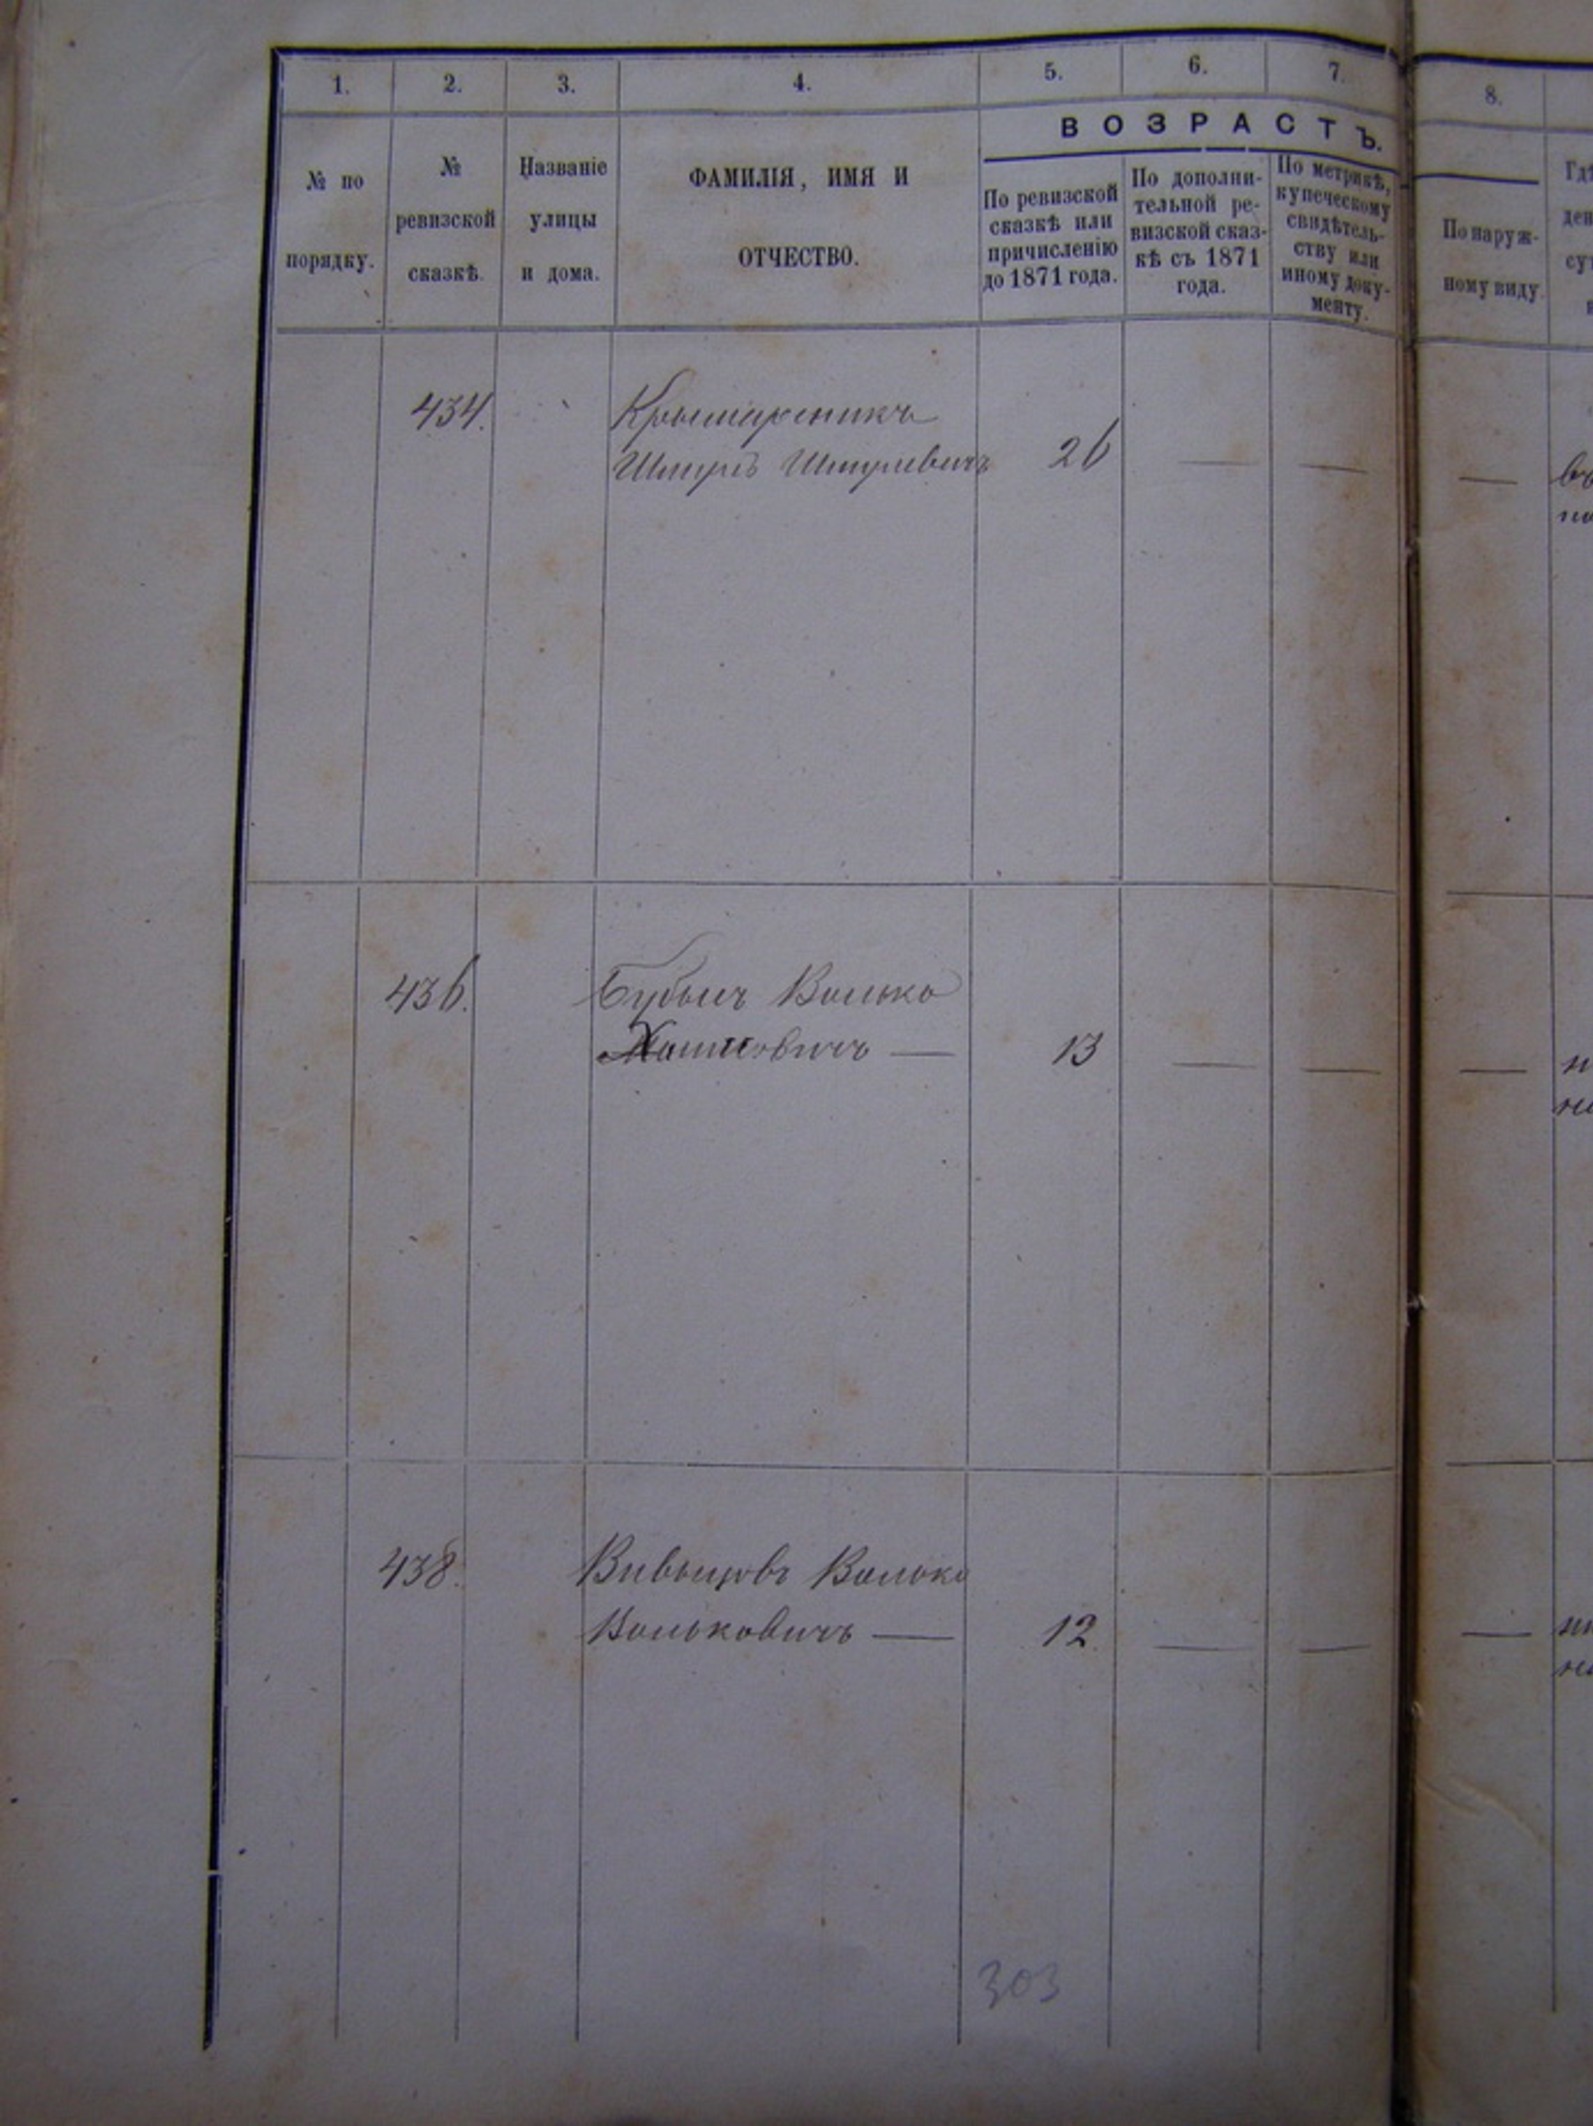 1. 2. 3. 4. 5. 6. 7. 8.
ВОЗРАСТЪ.
№ по
порядку.
№
ревизской
сказкѣ.
Названіе
улицы
и дома.
ФАМИЛІЯ, ИМЯ И
ОТЧЕСТВО.
По ревизской
сказкѣ или
причисленію
до 1871 года.
По дополни-
тельной ре-
визской сказ-
кѣ съ 1871
года.
По метрикѣ,
купеческому
свидѣтель-
ству или
иному доку-
менту.
По наруж-
ному виду.
434.
Шмуль Шмулевичъ 26 — — —
436. Волько
13 — — —
438. Волько
Вольковичъ — 12 — — —
303